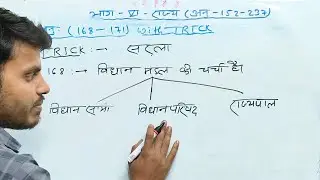 भाग - VI - राज्य (अनु - 152-237)
(168 - 171) With TRICK
TRICK :- सरला
168 :- विधान मंडल की चर्चा है।
विधान सभा विधान परिषद राज्यपाल